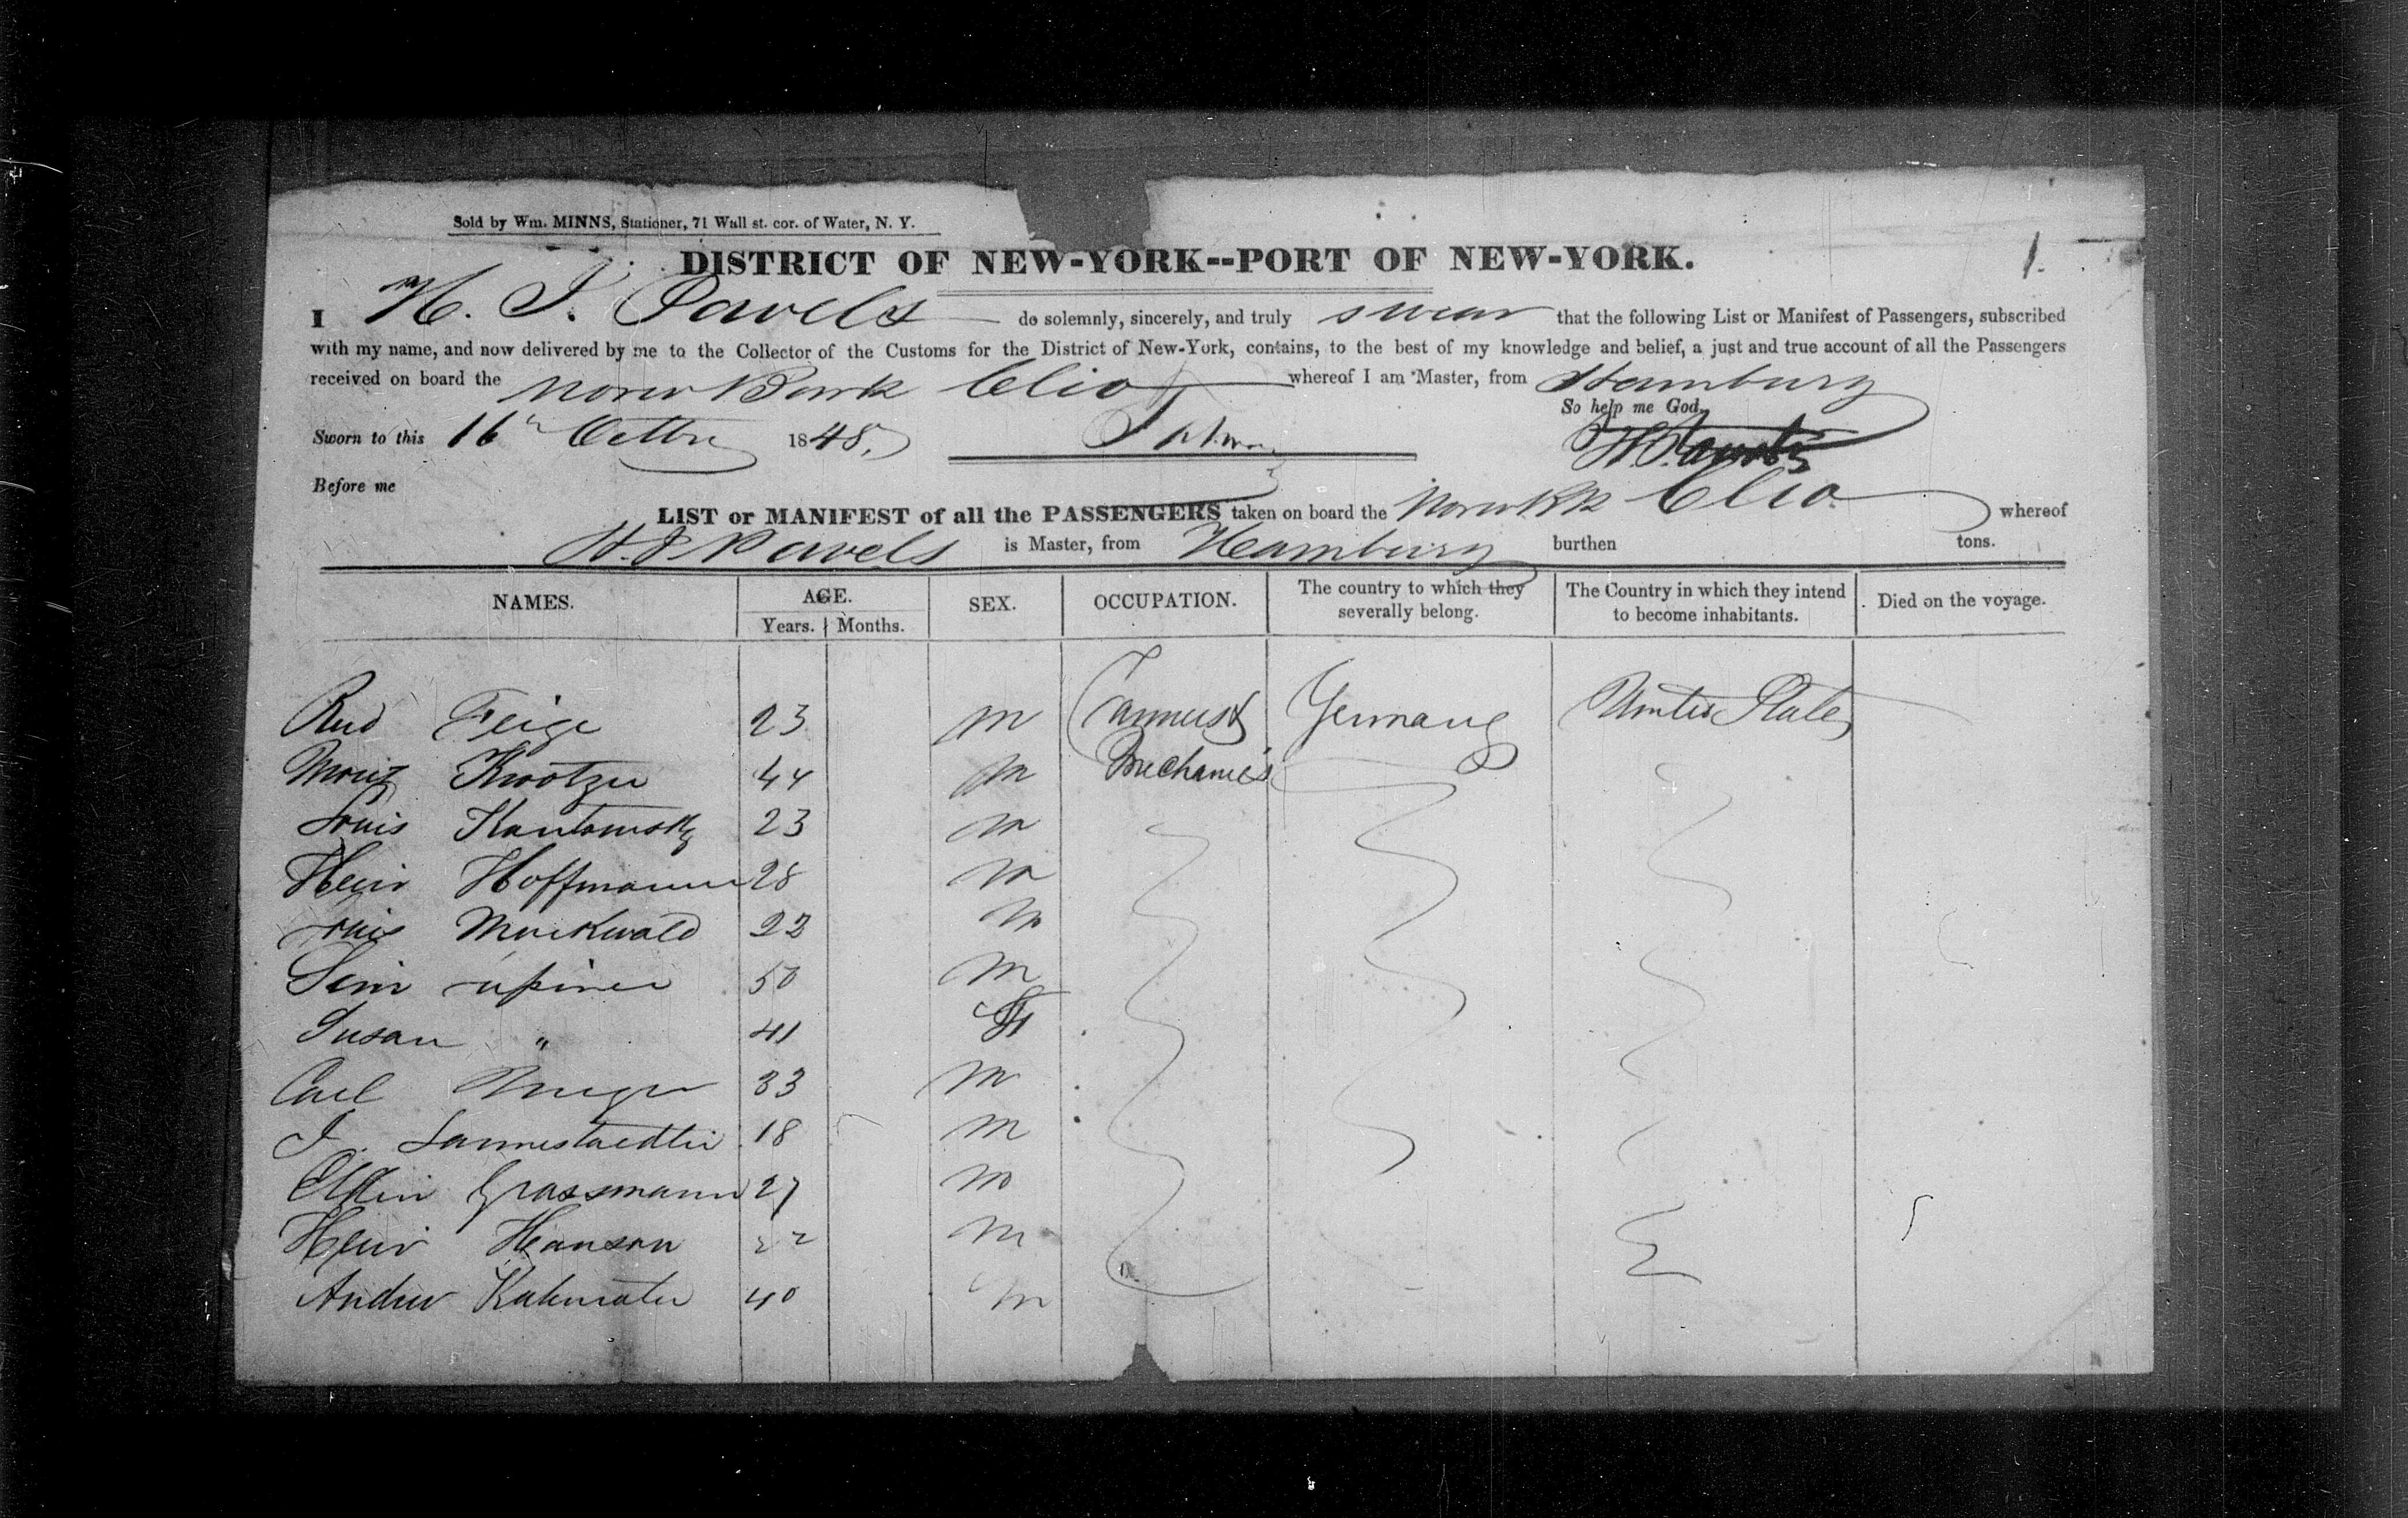 Sold by Wm. MINNS, Stationer, 71 Wall st. cor. of Water, N. Y.
DISTRICT OF NEW-YORK--PORT OF NEW-YORK.
1.
I H. J. Pavels do solemnly, sincerely, and truly swear that the following List or Manifest of Passengers, subscribed
with my name, and now delivered by me to the Collector of the Customs for the District of New-York, contains, to the best of my knowledge and belief, a just and true account of all the Passengers
received on board the Norw Bark Clio whereof I am Master, from Hamburg
So help me God.
Sworn to this 16 1848.
Before me
LIST or MANIFEST of all the PASSENGERS taken on board the Clio whereof
H. J. Pavels is Master, from Hamburg burthen tons.
NAMES. AGE. SEX. OCCUPATION. The country to which they severally belong. The Country in which they intend to become inhabitants. Died on the voyage.
Years. Months.
Rud Feige 23 m Germany United States
Moritz 44 m Mechanics
Louis 23 m
Heinr Hoffmann 28 m
Louis 22 m
50 m
Susan " 41 F
Carl 33 m
J. 18 m
Grassmann 27 m
Heinr Hanson 22 m
Andrew 40 m